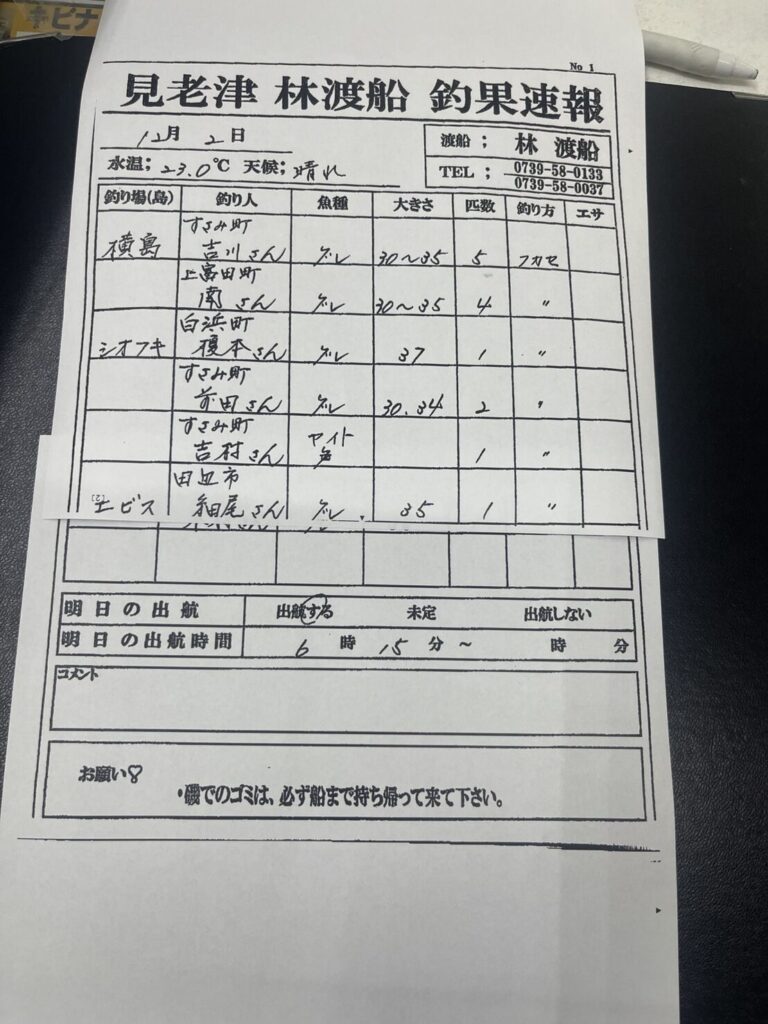 キビナ
No 1
見老津 林渡船 釣果速報
12月 2日
水温; 23.0℃ 天候; 晴れ
渡船 ; 林 渡船
TEL ; 0739-58-0133
0739-58-0037
釣り場(島) 釣り人 魚種 大きさ 匹数 釣り方 エサ
すさみ町
横島 吉川さん グレ 30〜35 5 フカセ
上富田町
南さん グレ 30〜35 4 〃
白浜町
シオフキ 榎本さん グレ 37 1 〃
すさみ町
前田さん グレ 30.34 2 〃
すさみ町
吉村さん 1 〃
田辺市
エビス 細尾さん グレ 35 1 〃
明日の出航 出航する 未定 出航しない
明日の出航時間 6 時 15 分 ~ 時 分
コメント
お願い♡
・磯でのゴミは、必ず船まで持ち帰って来て下さい。